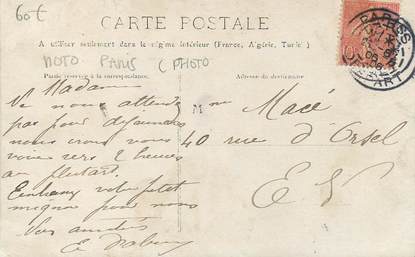 60€
CARTE POSTALE
A utiliser seulement dans le régime intérieur (France, Algérie, Tunisie)
MOTO PARIS (PHOTO
Partie réservée à la correspondance.
Adresse du destinataire
PARIS
DEPART
Madame
Ne nous attendez
pas pour déjeuner
nous irons vous
voir vers 2 heures
au plus tard.
Embrassez votre petit
mignon pour nous
Vos amitiés
E
Mme Macé
40 rue d'Orsel
E V